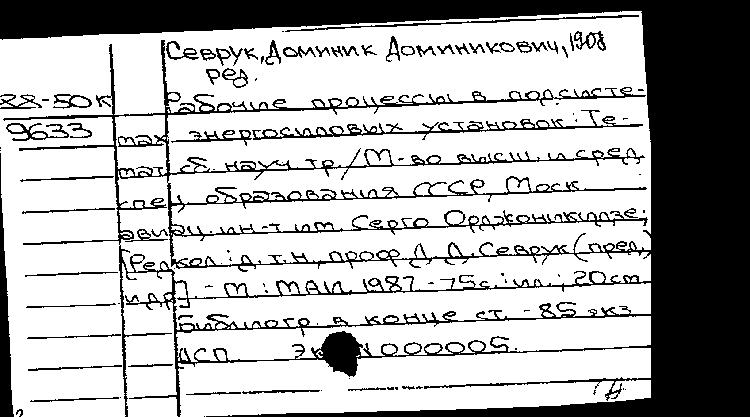 Севрук, Доминик Доминикович, 1908
ред.
88-50к Рабочие процессы в подсисте-
9633 мах энергосиловых установок: Те-
мат. сб. науч. тр. / М-во высш. и сред.
спец. образования СССР, Моск.
авиац. ин-т им. Серго Орджоникидзе;
[Редкол.: д.т.н., проф. Д.Д. Севрук (пред.)
и др.]. - М.: МАИ, 1987. - 75с.: ил.; 20см.
Библиогр. в конце ст. - 85 экз.
ДСП. N 000005.